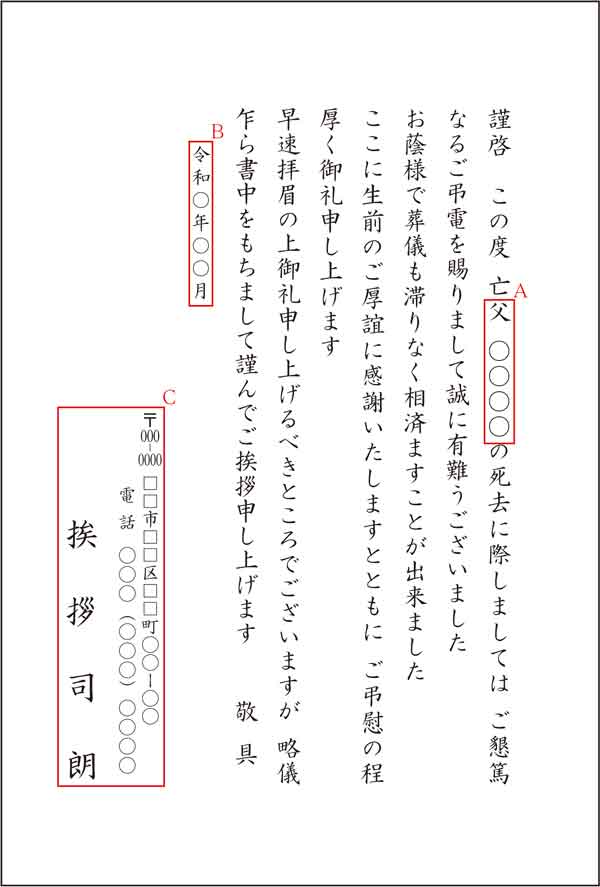 謹啓 この度 亡父 〇〇〇〇の死去に際しましては ご懇篤
なるご弔電を賜りまして誠に有難うございました
お蔭様で葬儀も滞りなく相済ますことが出来ました
ここに生前のご厚誼に感謝いたしますとともに ご弔慰の程
厚く御礼申し上げます
早速拝眉の上御礼申し上げるべきところでございますが 略儀
乍ら書中をもちまして謹んでご挨拶申し上げます 敬具
令和〇年〇〇月
〒000-0000 □□市□□区□□町〇〇ー〇〇
電話 〇〇〇(〇〇〇)〇〇〇〇
挨拶司朗
A
B
C